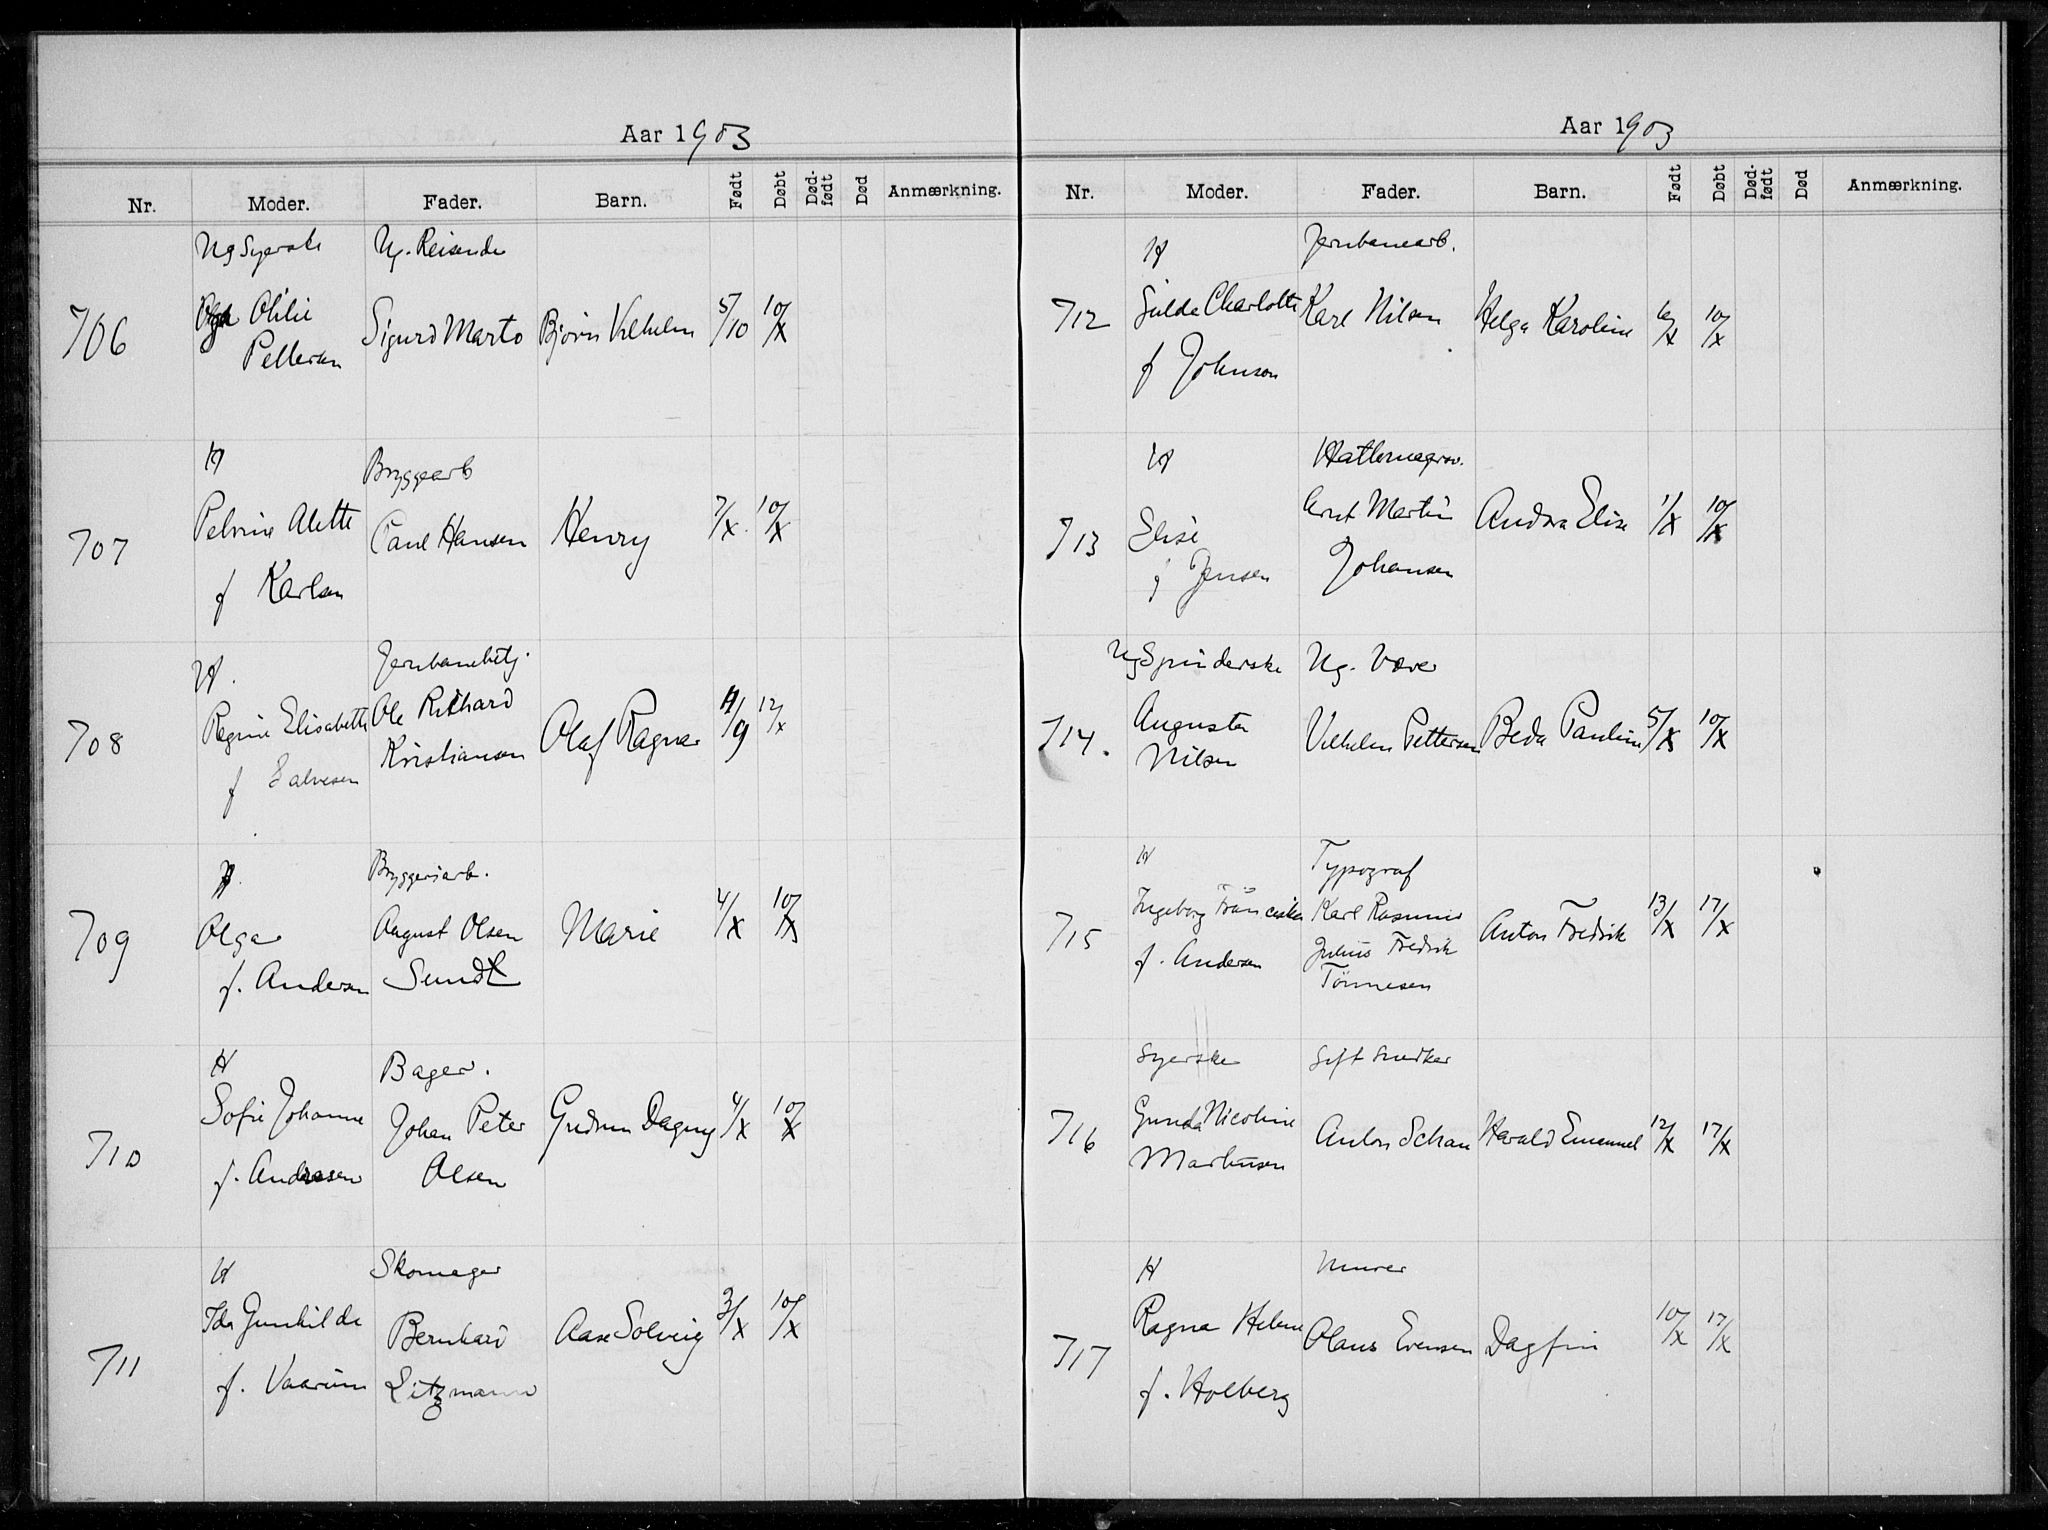 Aar 1903
Nr. Moder. Fader. Barn. Født Døbt Død-født Død Anmærkning.
Ug Syerske Ug. Reisende
706 Otilie Sigurd Marto Bjørn Vilhelm 5/10 10/X
Pettersen
H Bryggearb
707 Petrine Alette Carl Hansen Henry 7/X. 10/X
f Karlsen
H. Jernbanebetj.
708 Regine Elisabeth Ole Richard Olaf Ragnar /9 12/X
f Salvesen Kristiansen
H. Bryggeriarb.
709 Olga August Olsen Marie 4/X 10/X
f. Andersen Sundt
H Bager.
710 Sofie Johanne Johan Peter Gudrun Dagny 4/X 10/X
f. Andresen Olsen
H Skomager
711 Ida Gunhilda Bernhard Aase Solveig 3/X 10/X
f. Vaarum Litzmann
Aar 1903
Nr. Moder. Fader. Barn. Født Døbt Død-født Død Anmærkning.
H Jernbanearb.
712 Gulda Charlotte Karl Nilsen Helga Karoline 6/X 10/X
f Johnson
H Hattemagersv.
713 Elise Arnt Martin Andora Elise 1/X 10/X
f Jensen Johansen
Ug Spinderske Ug. Væver
714. Augusta Vilhelm Pettersen Beda Pauline 5/X 10/X
Nilsen
H Typograf
715 Ingeborg Franciska Karl Rasmus Anton Fredrik 13/X 17/X
f. Andersen Julius Fredrik
Tönnesen
Syerske Gift Snedker
716 Gunda Nicoline Anton Schau Harald Emanuel 12/X 17/X
Marthinsen
H Murer
717 Ragna Helene Olaus Evensen Dagfin 10/X 17/X
f. Holberg